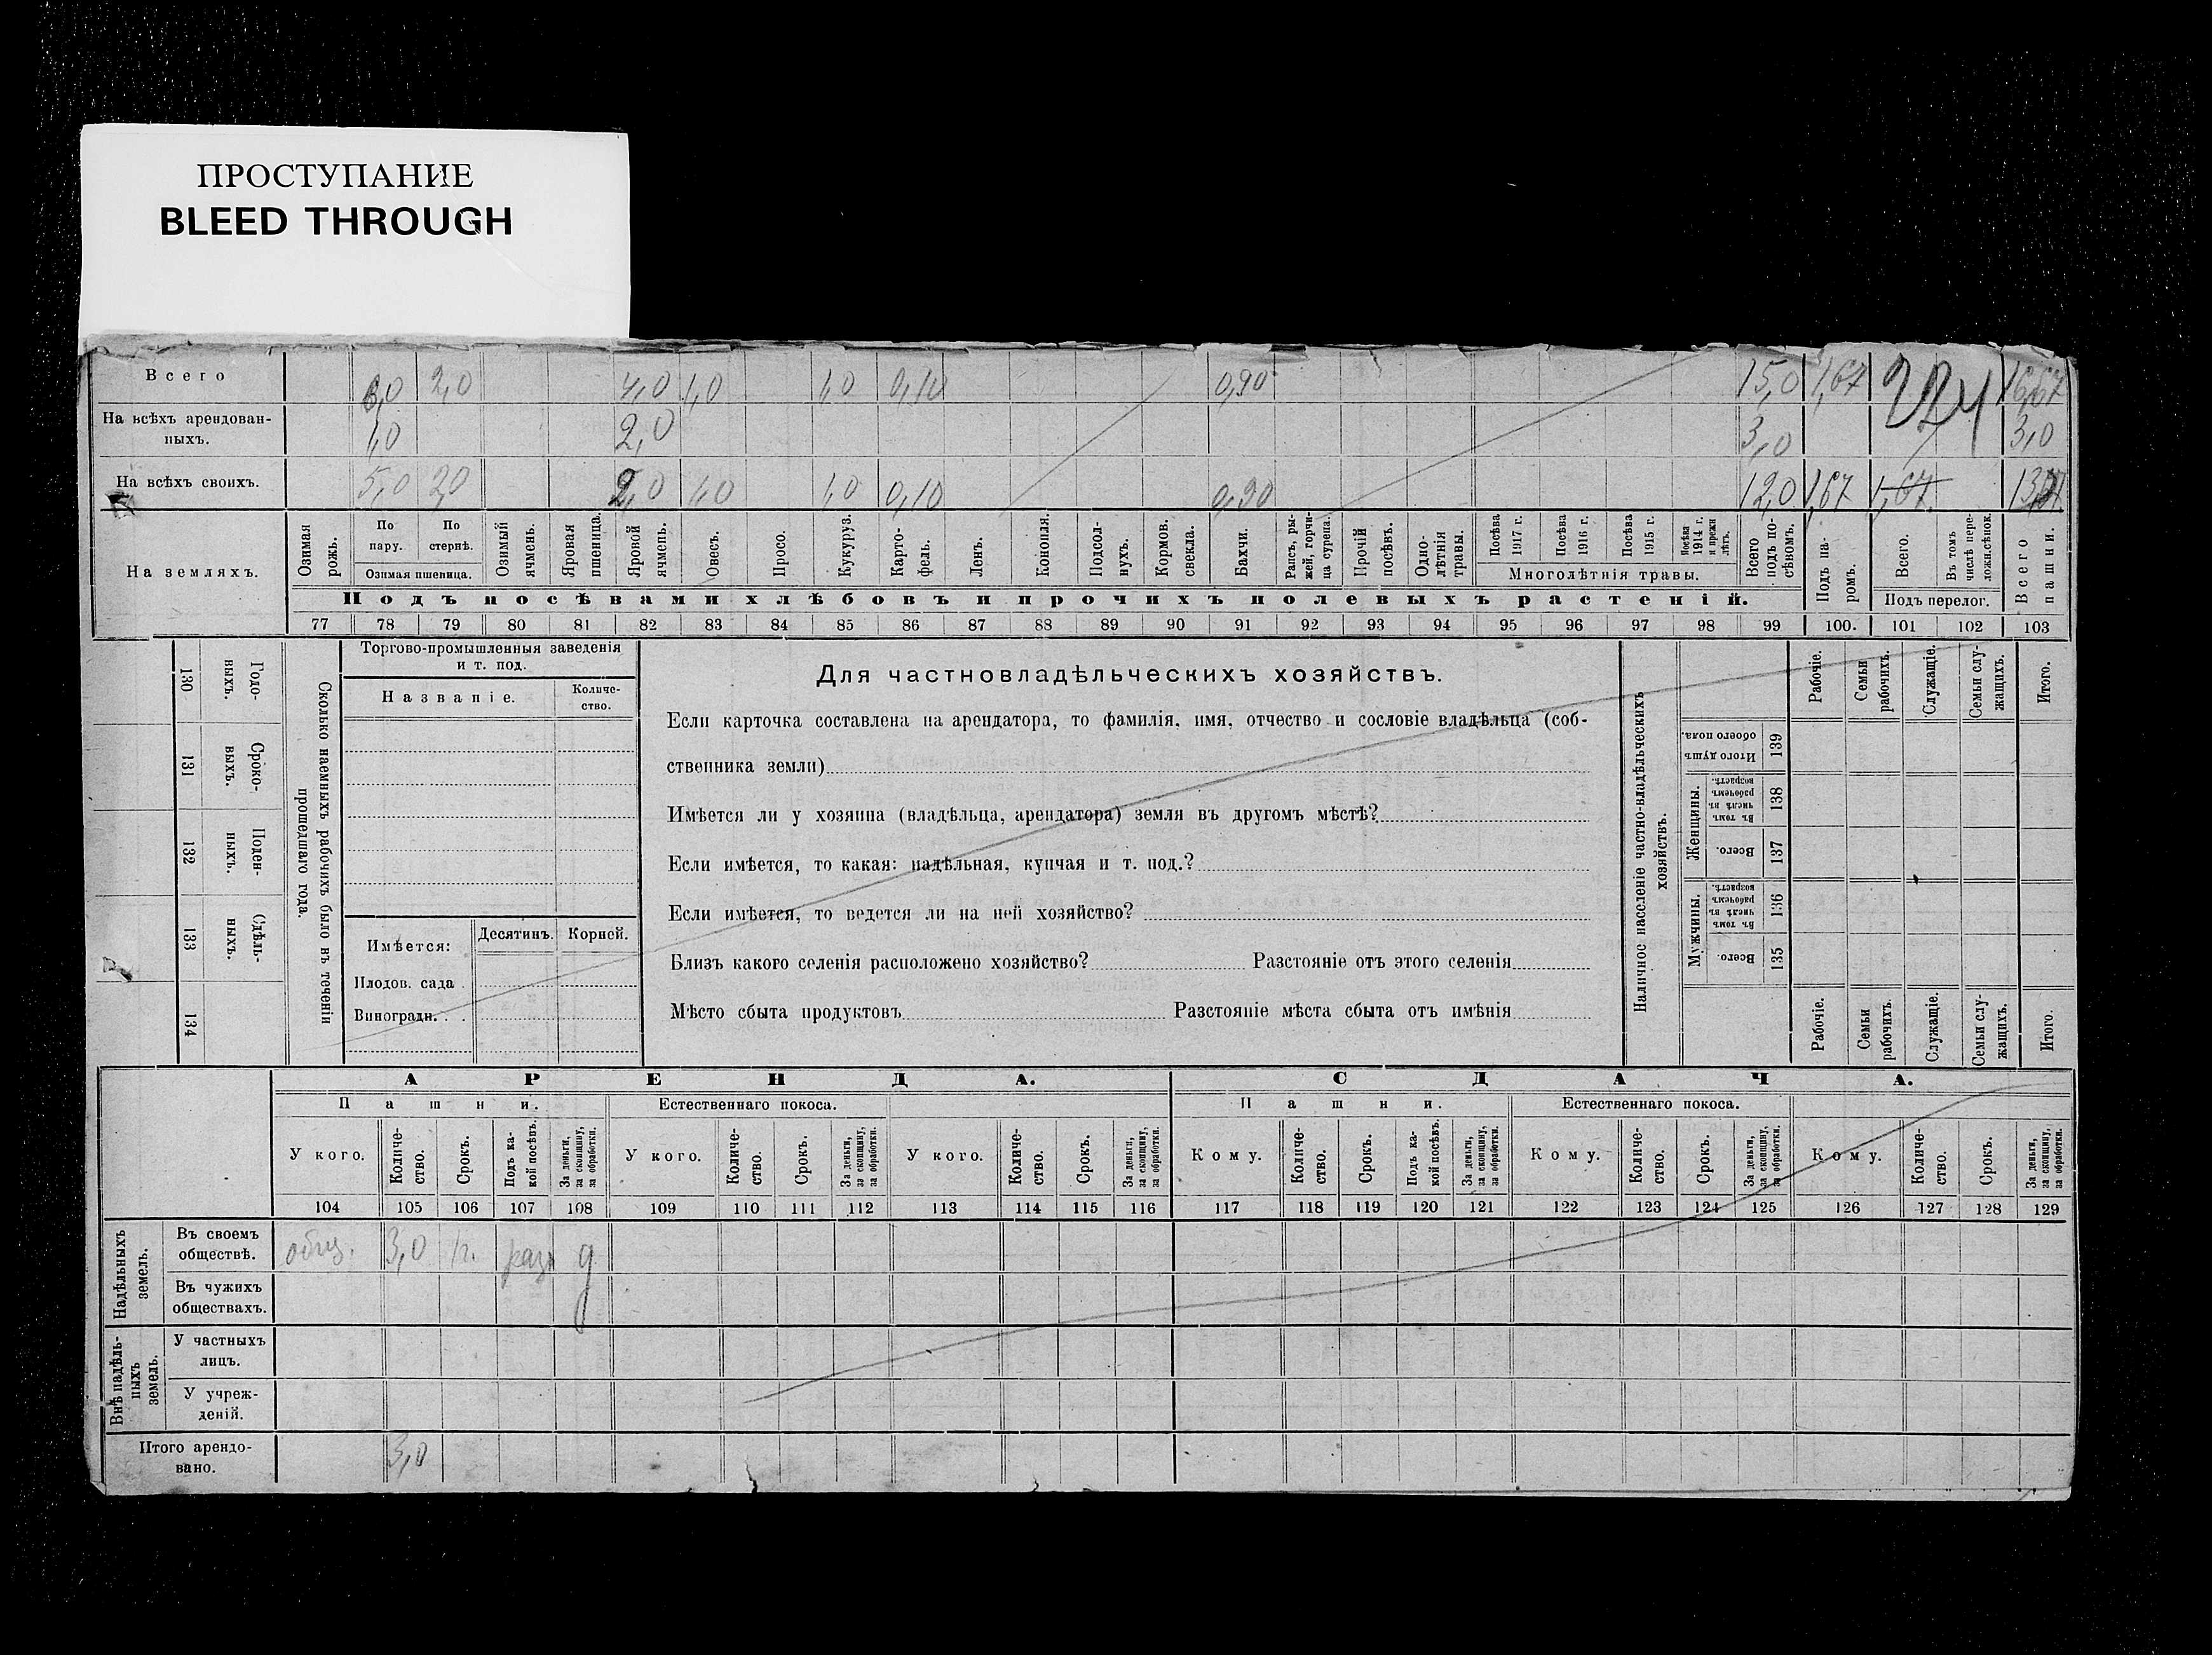 ПРОСТУПАНИЕ
BLEED THROUGH
Всего 6,0 2,0 4,0 1,0 1,0 0,10 0,90 15,0 1,67 224 16,67
На всѣхъ арендован-
ныхъ. 1,0 2,0 3,0 3,0
На всѣхъ своихъ. 5,0 2,0 2,0 1,0 1,0 0,10 0,90 12,0 1,67 1,67
На земляхъ.
Озимая рожь.
По пару.
По стернѣ.
Озимая пшеница.
Озимый ячмень.
Яровая пшеница.
Яровой ячмень.
Овесъ.
Просо.
Кукуруз.
Карто-
фель.
Ленъ.
Конопля.
Подсол-
нухъ.
Кормов. свекла.
Бахчи.
Рапсъ, ры-
жей, горчи-
ца сурепа.
Прочій посѣвъ.
Одно-
лѣтнія травы.
Посѣва 1917 г.
Посѣва 1916 г.
Посѣва 1915 г.
Посѣва 1914 г. и прежн лѣтъ.
Многолѣтнія травы.
Всего подъ по-
сѣвомъ.
Подъ па-
ромъ.
Всего.
Въ томъ числѣ пере-
лож.сѣнок.
Подъ перелог.
Всего пашни.
Подъ посѣвами хлѣбовъ и прочихъ полевыхъ растеній.
77 78 79 80 81 82 83 84 85 86 87 88 89 90 91 92 93 94 95 96 97 98 99 100. 101 102 103
130 Годо-
выхъ.
131 Сроко-
выхъ.
132 Поден-
ныхъ.
133 Сдѣль-
ныхъ.
134
Сколько наемныхъ рабочихъ было въ теченіи
прошедшаго года.
Торгово-промышленныя заведенія
и т. под.
Названіе.
Количе-
ство.
Имѣется:
Десятинъ. Корней.
Плодов. сада.
Виноградн.
Для частновладѣльческихъ хозяйствъ.
Если карточка составлена на арендатора, то фамилія, имя, отчество и сословіе владѣльца (соб-
ственника земли)
Имѣется ли у хозяина (владѣльца, арендатора) земля въ другомъ мѣстѣ?
Если имѣется, то какая: надѣльная, купчая и т. под.?
Если имѣется, то ведется ли на ней хозяйство?
Близъ какого селенія расположено хозяйство? Разстояніе отъ этого селенія
Мѣсто сбыта продуктовъ Разстояніе мѣста сбыта отъ имѣнія
Наличное населеніе частно-владѣльческихъ
хозяйствъ.
Рабочіе.
Семьи рабочихъ.
Служащіе.
Семьи слу-
жащихъ.
Итого.
Итого душъ обоего пола. 139
Женщины.
Въ томъ числѣ въ рабочемъ возрастѣ. 138
Всего. 137
Мужчины.
Въ томъ числѣ въ рабочемъ возрастѣ. 136
Всего. 135
Рабочіе.
Семьи рабочихъ.
Служащіе.
Семьи слу-
жащихъ.
Итого.
АРЕНДА. СДАЧА.
Пашни. Естественнаго покоса. Пашни. Естественнаго покоса.
У кого. Количе-
ство. Срокъ. Подъ ка-
кой посѣвъ. За деньги, за скопщину, за обработки.
У кого. Количе-
ство. Срокъ. За деньги, за скопщину, за обработки.
У кого. Количе-
ство. Срокъ. За деньги, за скопщину, за обработки.
Кому. Количе-
ство. Срокъ. Подъ ка-
кой посѣвъ. За деньги, за скопщину, за обработки.
Кому. Количе-
ство. Срокъ. За деньги, за скопщину, за обработки.
Кому. Количе-
ство. Срокъ. За деньги, за скопщину, за обработки.
104 105 106 107 108 109 110 111 112 113 114 115 116 117 118 119 120 121 122 123 124 125 126 127 128 129
Надѣльныхъ земель.
Въ своемъ
обществѣ. общ. 3,0 1г. разн д
Въ чужихъ
обществахъ.
Внѣ надѣль-
ныхъ земель.
У частныхъ
лицъ.
У учреж-
деній.
Итого арендо-
вано. 3,0